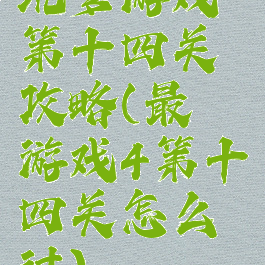 游戏
第十四关
攻略(最
游戏4第十
四关怎么
过)